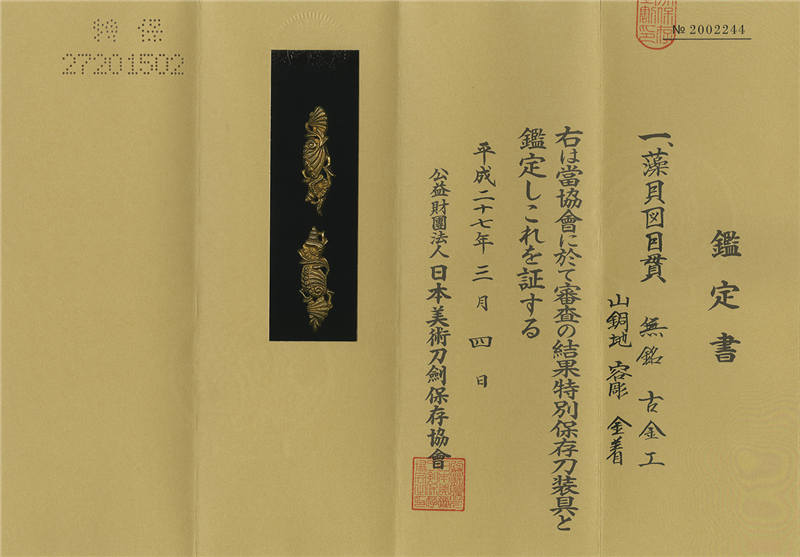 № 2002244
鑑定書
一、藻貝図目貫 無銘 古金工
山銅地 容彫 金着
右は當協會に於て審査の結果特別保存刀装具と
鑑定しこれを証する
平成二十七年三月四日
公益財團法人 日本美術刀劍保存協會
特保
27201502